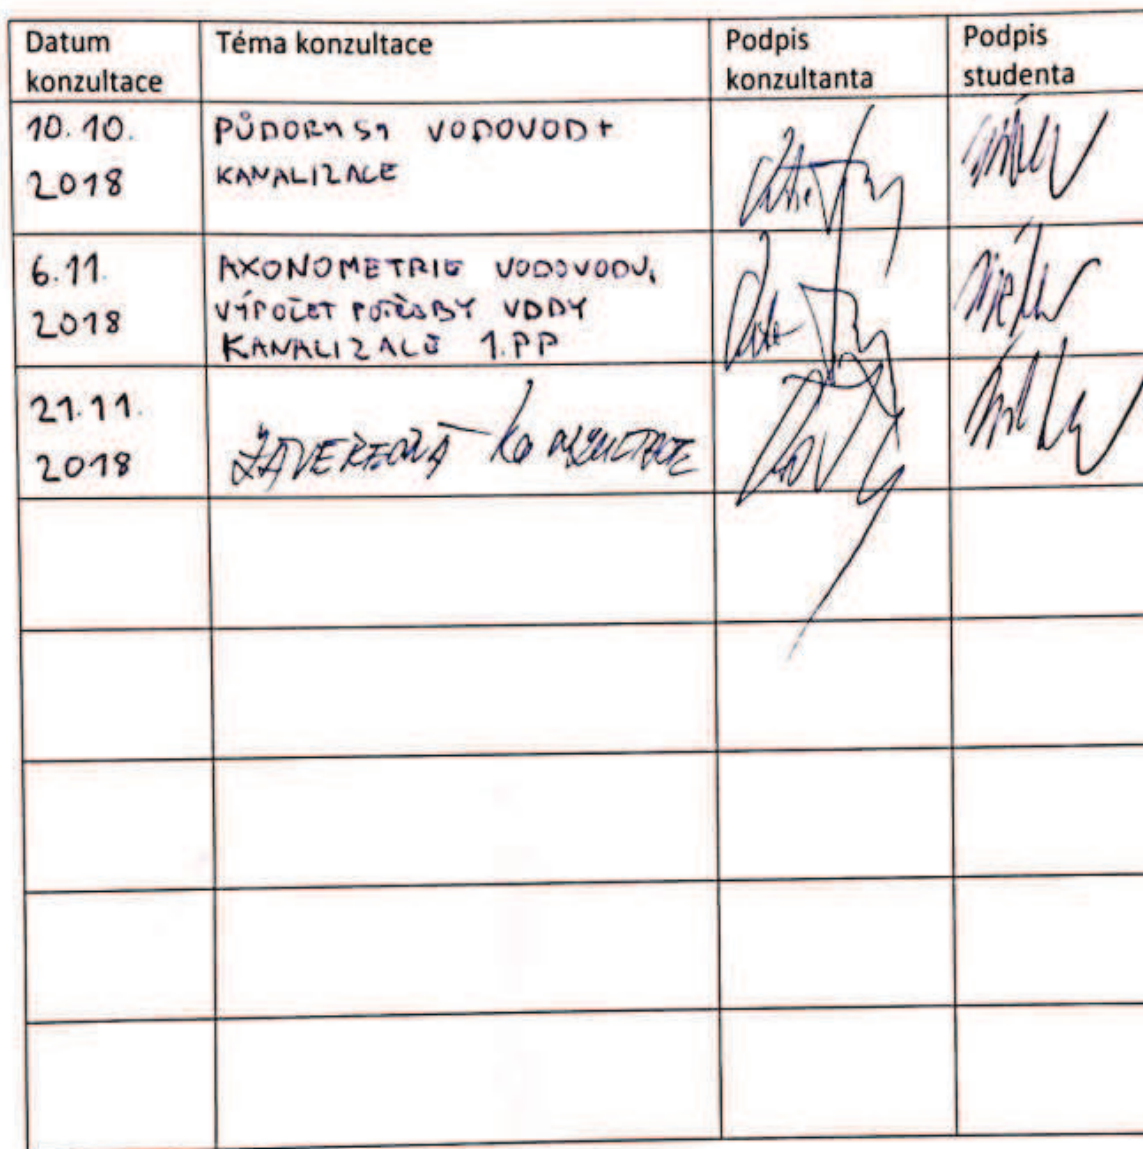 Datum konzultace
Téma konzultace
Podpis konzultanta
Podpis studenta
10.10. 2018
PŮDORYSY VODOVOD +
KANALIZACE
6.11. 2018
AXONOMETRIE VODOVODU,
VÝPOČET POTŘEBY VODY
KANALIZACE 1.PP
21.11. 2018
ZÁVEREČNÁ KONZULTACE